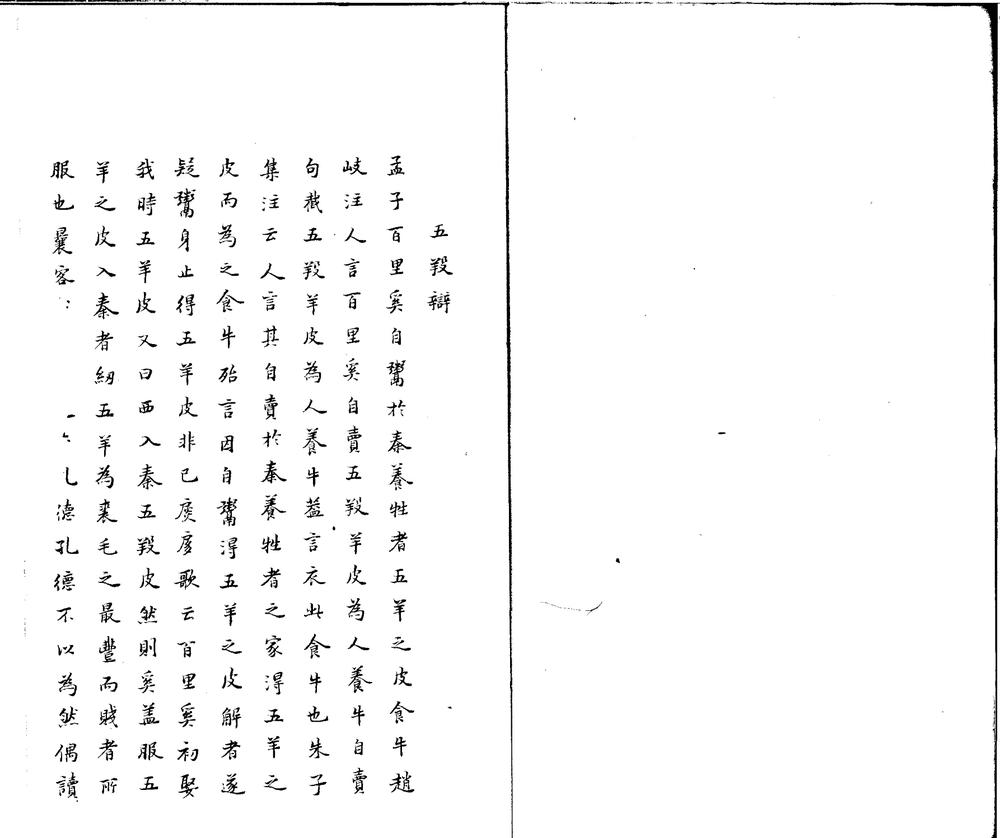 五羖辯
孟子百里奚自鬻於秦養牲者五羊之皮食牛趙
岐注人言百里奚自賣五羖羊皮為人養牛自賣
句截五羖羊皮為人養牛葢言衣此食牛也朱子
集注云人言其自賣於秦養牲者之家淂五羊之
皮而為之食牛殆言因自鬻淂五羊之皮解者遂
疑鬻身止得五羊皮非已扊扅歌云百里奚初娶
我時五羊皮又曰西入秦五羖皮然則奚盖服五
羊之皮入秦者糿五羊為裘毛之最豐而賤者所
服也曩客
德孔德不以為然偶讀